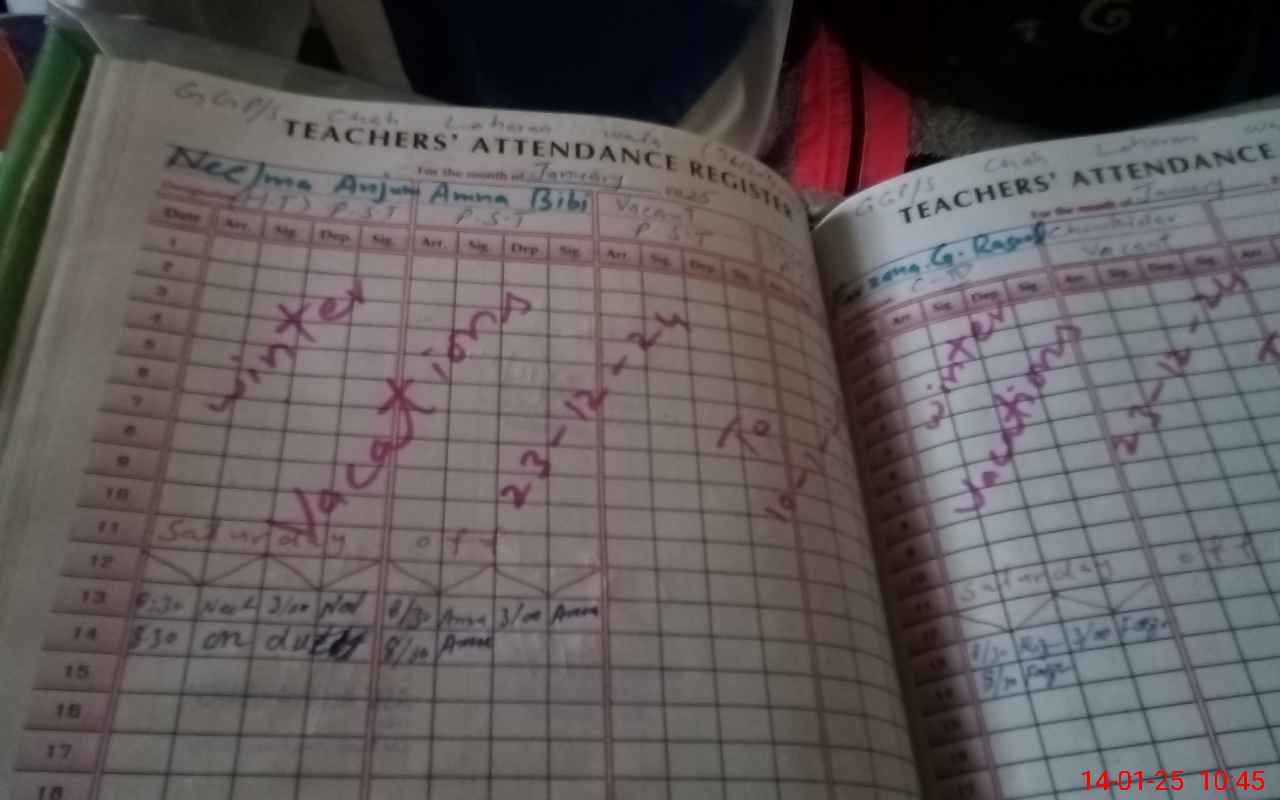 GGP/S Chah Loharan wala
TEACHERS' ATTENDANCE REGISTER
For the month of January 2025
Neelma Anjum Amna Bibi Vacant
(H.T) P.S.T P.S.T P.S.T
Date Arr. Sig. Dep. Sig. Arr. Sig. Dep. Sig. Arr. Sig. Dep. Sig.
1
2
3
4
5
6
7
8
9
10
winter
Vacations
23-12-24
To
11 Saturday off
12
13 8:30 Neel 3/00 Neel 8/30 Amna 3/00 Amna
14 8:30 on duty 8/30 Amna
15
16
17
18
GGP/S Chah Loharan
TEACHERS' ATTENDANCE
For the month of January
G. Rasool Chowkidar
Vacent
Arr. Sig. Dep. Sig. Arr. Sig. Dep. Sig. Arr.
winter
Vacations
23-12-24
Saturday off
8/30 3/00
8/30
14-01-25 10:45